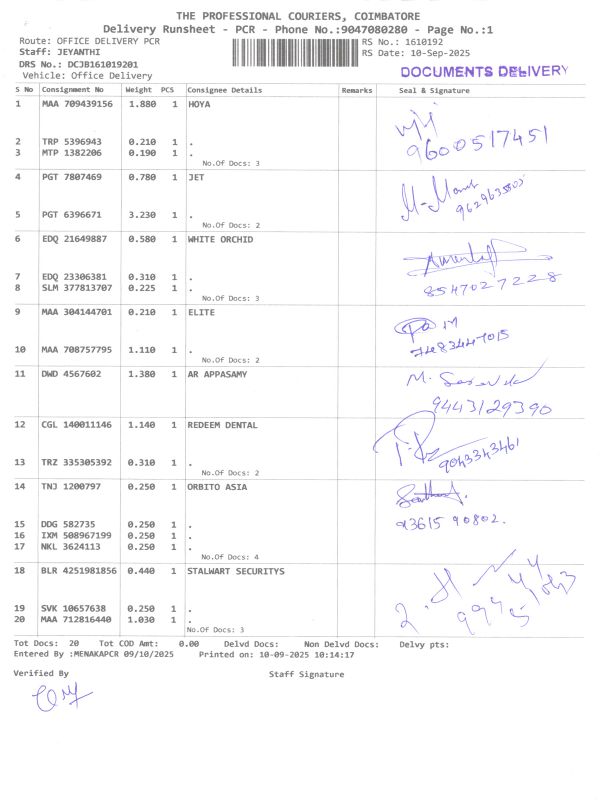 THE PROFESSIONAL COURIERS, COIMBATORE
Delivery Runsheet - PCR - Phone No.:9047080280 - Page No.:1
Route: OFFICE DELIVERY PCR RS No.: 1610192
Staff: JEYANTHI RS Date: 10-Sep-2025
DRS No.: DCJB161019201
Vehicle: Office Delivery DOCUMENTS DELIVERY
S No Consignment No Weight PCS Consignee Details Remarks Seal & Signature
1 MAA 709439156 1.880 1 HOYA
2 TRP 5396943 0.210 1 .
9600517451
3 MTP 1382206 0.190 1 .
No.Of Docs: 3
4 PGT 7807469 0.780 1 JET
5 PGT 6396671 3.230 1 .
No.Of Docs: 2
6 EDQ 21649887 0.580 1 WHITE ORCHID
7 EDQ 23306381 0.310 1 .
8547027228
8 SLM 377813707 0.225 1 .
No.Of Docs: 3
9 MAA 304144701 0.210 1 ELITE
10 MAA 708757795 1.110 1 .
No.Of Docs: 2
11 DWD 4567602 1.380 1 AR APPASAMY
9443129390
12 CGL 140011146 1.140 1 REDEEM DENTAL
13 TRZ 335305392 0.310 1 .
9043343461
No.Of Docs: 2
14 TNJ 1200797 0.250 1 ORBITO ASIA
15 DDG 582735 0.250 1 .
93615 90802.
16 IXM 508967199 0.250 1 .
17 NKL 3624113 0.250 1 .
No.Of Docs: 4
18 BLR 4251981856 0.440 1 STALWART SECURITYS
19 SVK 10657638 0.250 1 .
20 MAA 712816440 1.030 1 .
No.Of Docs: 3
Tot Docs: 20 Tot COD Amt: 0.00 Delvd Docs: Non Delvd Docs: Delvy pts:
Entered By :MENAKAPCR 09/10/2025 Printed on: 10-09-2025 10:14:17
Verified By Staff Signature